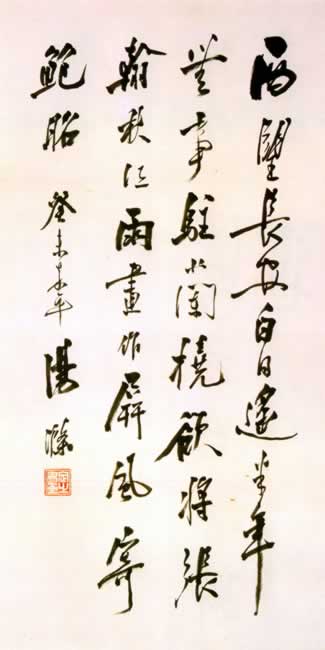 西望長安白日遙半年
無事駐蘭橈欲將張
翰秋江雨畫作屏風寄
鮑昭 癸未